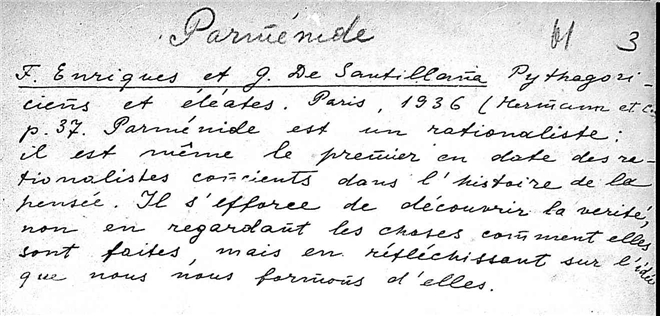 Parménide 61 3
F. Enriques et G. De Santillana Pythagori-
ciens et éléates. Paris, 1936 (Hermann et C
p. 37. Parménide est un rationaliste:
il est même le premier en date des ra-
tionalistes concients dans l'histoire de la
pensée. Il s'efforce de découvrir la verité,
non en regardant les choses comment elles
sont faites, mais en réfléchissant sur l'idée
que nous nous formons d'elles.